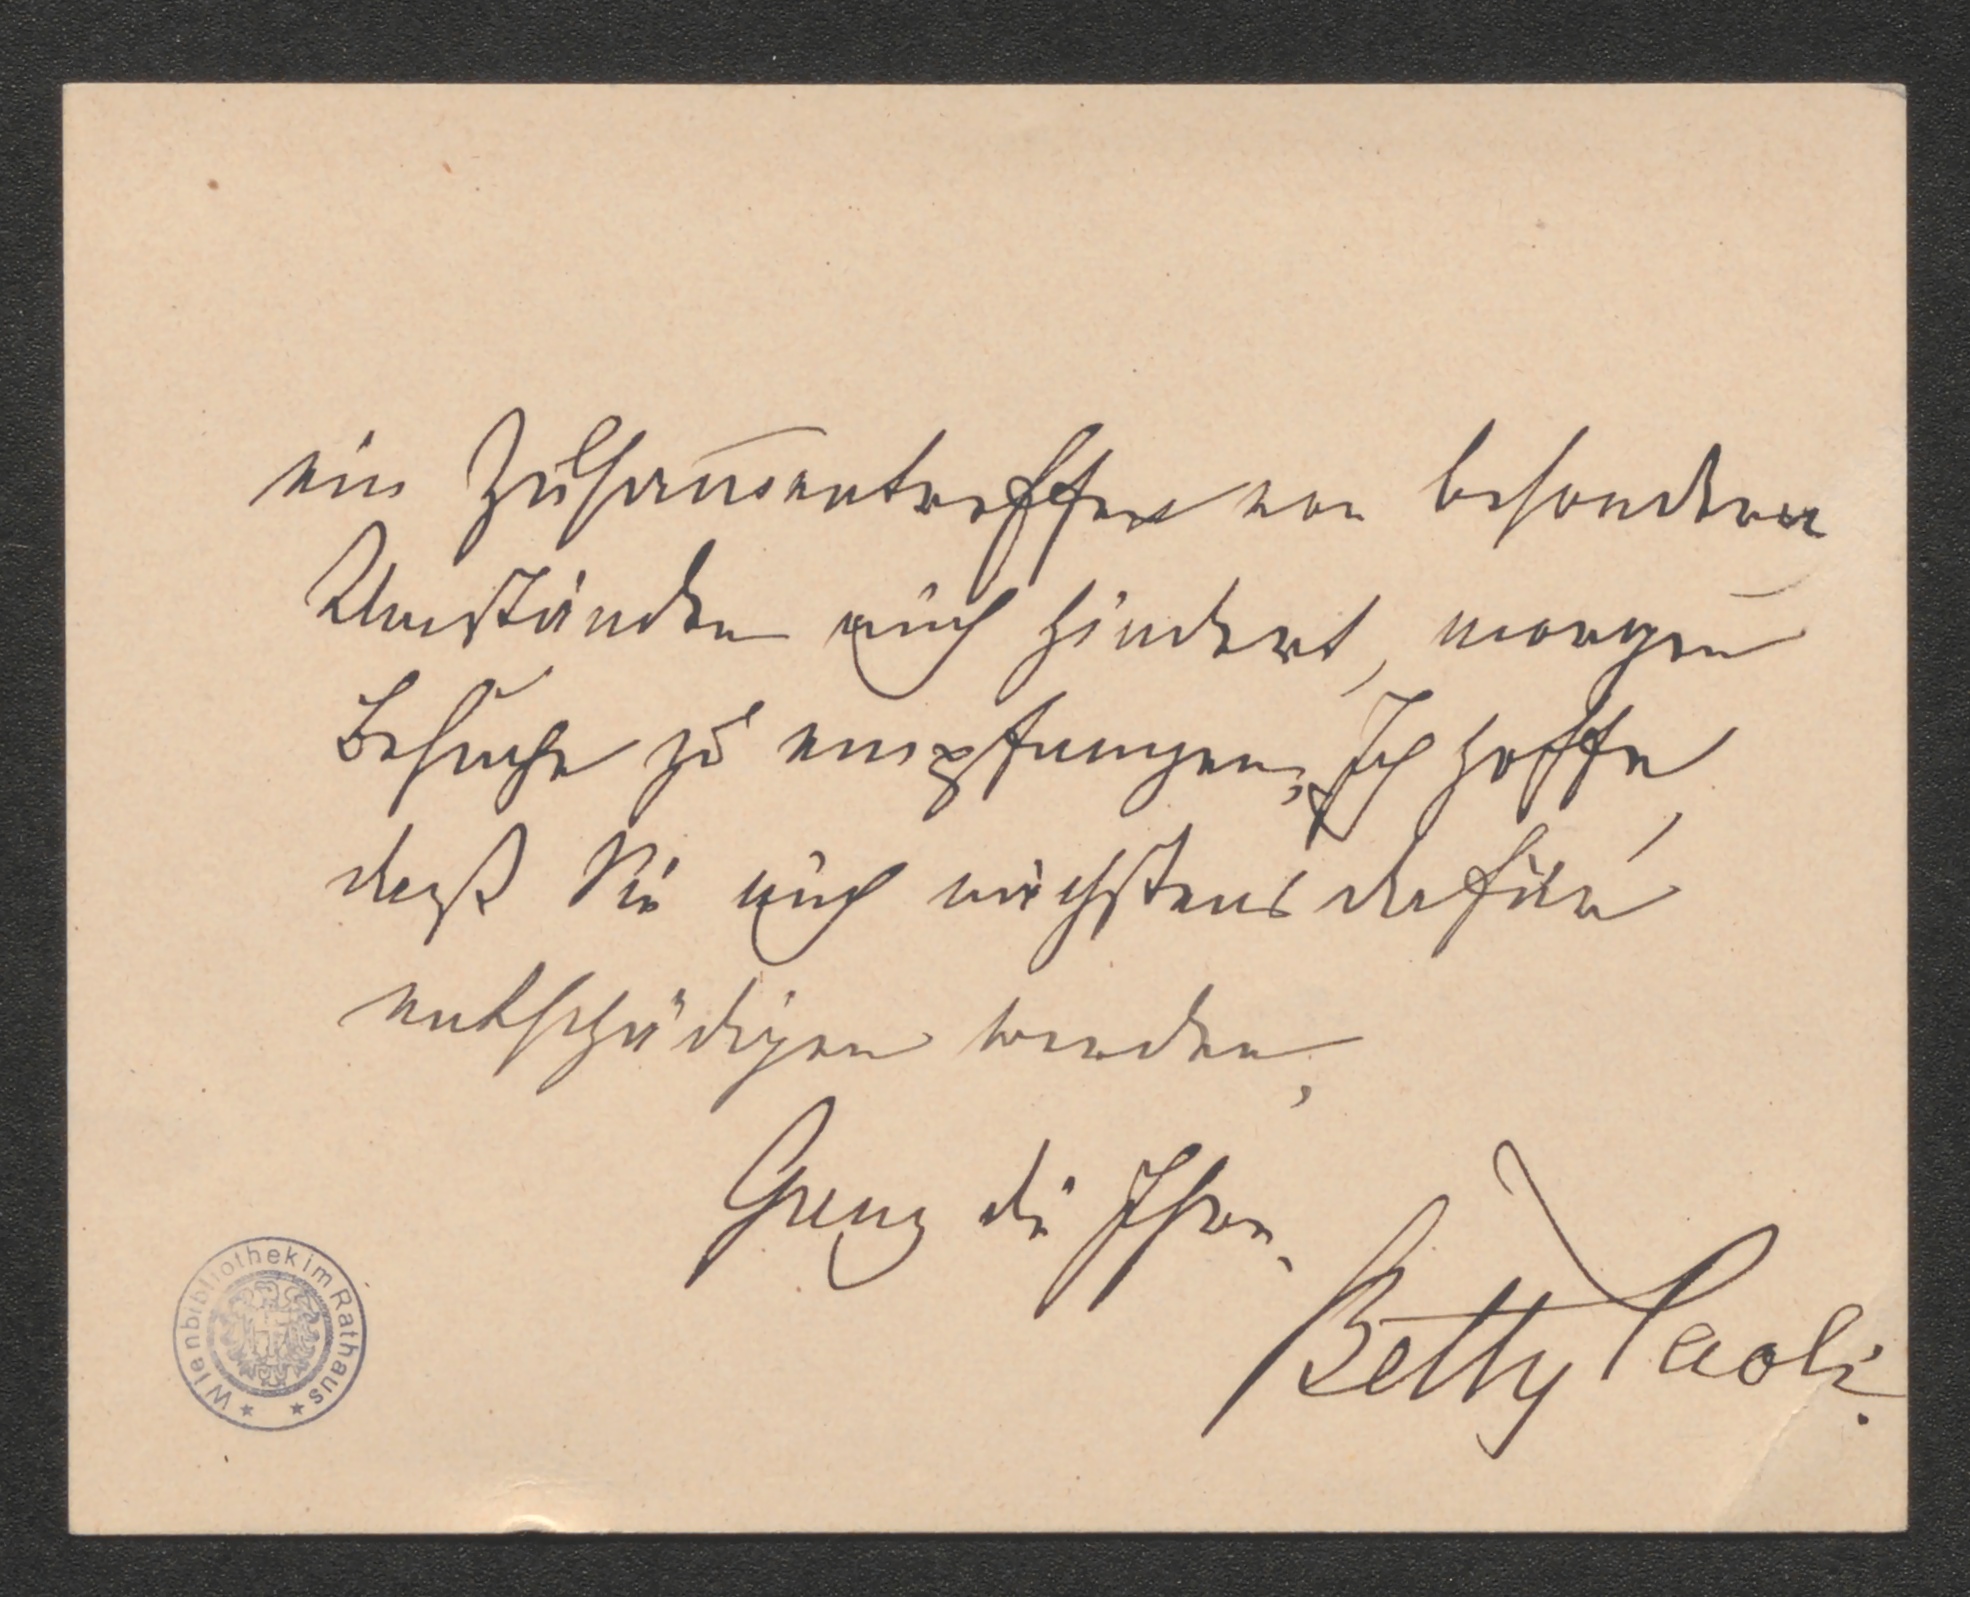 ein Zusam̅entreffen von besonderen
Umständen mich hindert, morgen
Besuche zu empfangen. Ich hoffe,
daß Sie mich nächstens dafür
entschädigen werden.
Ganz die Ihre.
Betty Paoli.
Wienbibliothek im Rathaus